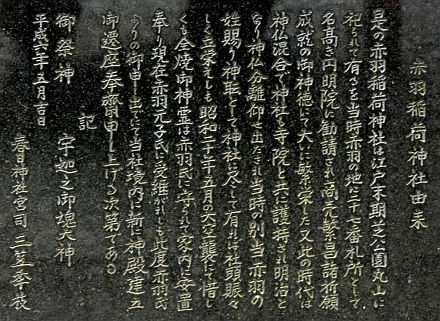 赤羽稲荷神社由来
是の赤羽稲荷神社は江戸末期芝公園丸山に
祀られて有るを当時赤羽の地に二十七番札所として
名高き円明院に勧請され商元繁昌諸祈願
成就の御神徳にて大いに繁栄し又此の時代は
神仏混合で神社も寺院と共に護持され明治と
なり神仏分離仰せ出ださされ当時の別当赤羽の
姓賜り神職として神社に尽して有れば社頭賑々
しく立栄えしも昭和二十年五月の大空襲にて惜し
くも全焼御神霊は赤羽氏に守られて家内に安置
奉り現在赤羽元子氏に受継がれしも此度赤羽氏
よりの御申し出にて当社境内に新に神殿建立
御遷座奉齋申し上げる次第である
記
御祭神 宇迦之御魂大神
平成六年五月吉日
春日神社宮司 三笠季枝